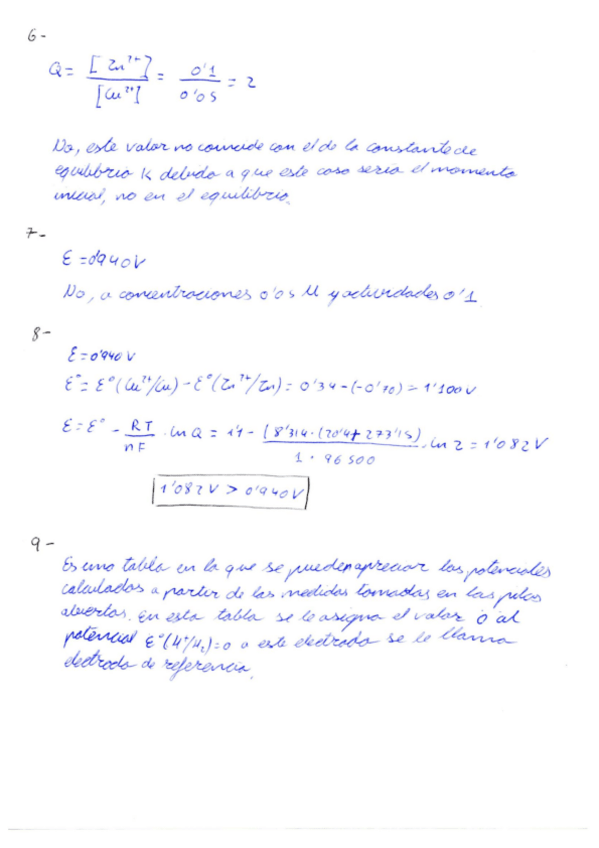 6-
Q = [Zn²⁺] / [Cu²⁺] = 0'1 / 0'05 = 2
No, este valor no coincide con el de la constante de
equilibrio K debido a que este caso sería el momento
inicial, no en el equilibrio.
7-
ε = 0'940V
No, a concentraciones 0'05 M y actividades 0'1
8-
ε = 0'940 V
ε° = ε° (Cu²⁺/Cu) - ε° (Zn²⁺/Zn) = 0'34 - (-0'70) = 1'100 V
ε = ε° - RT / nF · ln Q = 1'1 - (8'314 · (20'4 + 273'15) / 1 · 96500 · ln 2 = 1'082V
1'082V > 0'940V
9-
Es una tabla en la que se pueden apreciar los potenciales
calculados a partir de las medidas tomadas en las pilas
abiertas. En esta tabla se le asigna el valor 0 al
potencial ε° (H⁺/H₂) = 0 a este electrodo se le llama
electrodo de referencia.